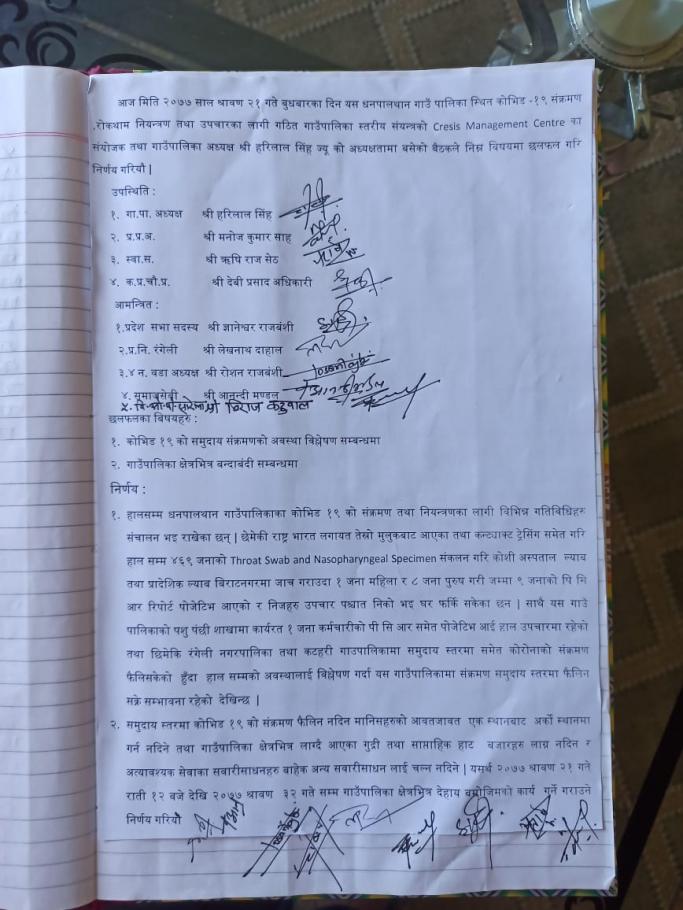 आज मिति २०७७ साल श्रावण २१ गते बुधबारका दिन यस धनपालथान गाउँ पालिका स्थित कोभिड -१९ संक्रमण
,रोकथाम नियन्त्रण तथा उपचारका लागी गठित गाउँपालिका स्तरीय संयन्त्रको Cresis Management Centre का
संयोजक तथा गाउँपालिका अध्यक्ष श्री हरिलाल सिंह ज्यू को अध्यक्षतामा बसेको बैठकले निम्न विषयमा छलफल गरि
निर्णय गरियो |
उपस्थिति :
१. गा.पा. अध्यक्ष श्री हरिलाल सिंह
२. प्र.प्र.अ. श्री मनोज कुमार साह
३. स्वा.स. श्री ऋषि राज सेठ
४. क.प्र.चौ.प्र. श्री देबी प्रसाद अधिकारी
आमन्त्रित :
१.प्रदेश सभा सदस्य श्री ज्ञानेश्वर राजबंशी
२.प्र.नि. रंगेली श्री लेखनाथ दाहाल
३.४ न. वडा अध्यक्ष श्री रोशन राजबंशी
४. समाजसेबी श्री आनन्दी मण्डल
छलफलका बिषयहरु :
१. कोभिड १९ को समुदाय संक्रमणको अवस्था विश्लेषण सम्बन्धमा
२. गाउँपालिका क्षेत्रभित्र बन्दाबंदी सम्बन्धमा
निर्णय :
१. हालसम्म धनपालथान गाउँपालिकाका कोभिड १९ को संक्रमण तथा नियन्त्रणका लागी विभिन्न गतिविधिहरु
संचालन भइ राखेका छन् | छिमेकी राष्ट्र भारत लगायत तेस्रो मुलुकबाट आएका तथा कन्ट्याक्ट ट्रेसिंग समेत गरि
हाल सम्म ४६९ जनाको Throat Swab and Nasopharyngeal Specimen संकलन गरि कोशी अस्पताल ल्याब
तथा प्रादेशिक ल्याब बिराटनगरमा जाच गराउदा १ जना महिला र ८ जना पुरुष गरी जम्मा ९ जनाको पि सि
आर रिपोर्ट पोजेटिभ आएको र निजहरु उपचार पश्चात निको भइ घर फर्कि सकेका छन | साथै यस गाउँ
पालिकाको पशु पंछी शाखामा कार्यरत १ जना कर्मचारीको पी सि आर समेत पोजेटिभ आई हाल उपचारमा रहेको
तथा छिमेकि रंगेली नगरपालिका तथा कटहरी गाउपालिकामा समुदाय स्तरमा समेत कोरोनाको संक्रमण
फैलिसकेको हुँदा हाल सम्मको अवस्थालाई बिश्लेषण गर्दा यस गाउँपालिकामा संक्रमण समुदाय स्तरमा फैलिन
सक्ने सम्भावना रहेको देखिन्छ |
२. समुदाय स्तरमा कोभिड १९ को संक्रमण फैलिन नदिन मानिसहरुको आवतजावत एक स्थानबाट अर्को स्थानमा
गर्न नदिने तथा गाउँपालिका क्षेत्रभित्र लाग्दै आएका गुद्री तथा साप्ताहिक हाट बजारहरु लाग्न नदिन र
अत्यावश्यक सेवाका सवारीसाधनहरु बाहेक अन्य सवारीसाधन लाई चल्न नदिने | यसर्थ २०७७ श्रावण २१ गते
राती १२ बजे देखि २०७७ श्रावण ३२ गते सम्म गाउँपालिका क्षेत्रभित्र देहाय बमोजिमको कार्य गर्ने गराउने
निर्णय गरियो